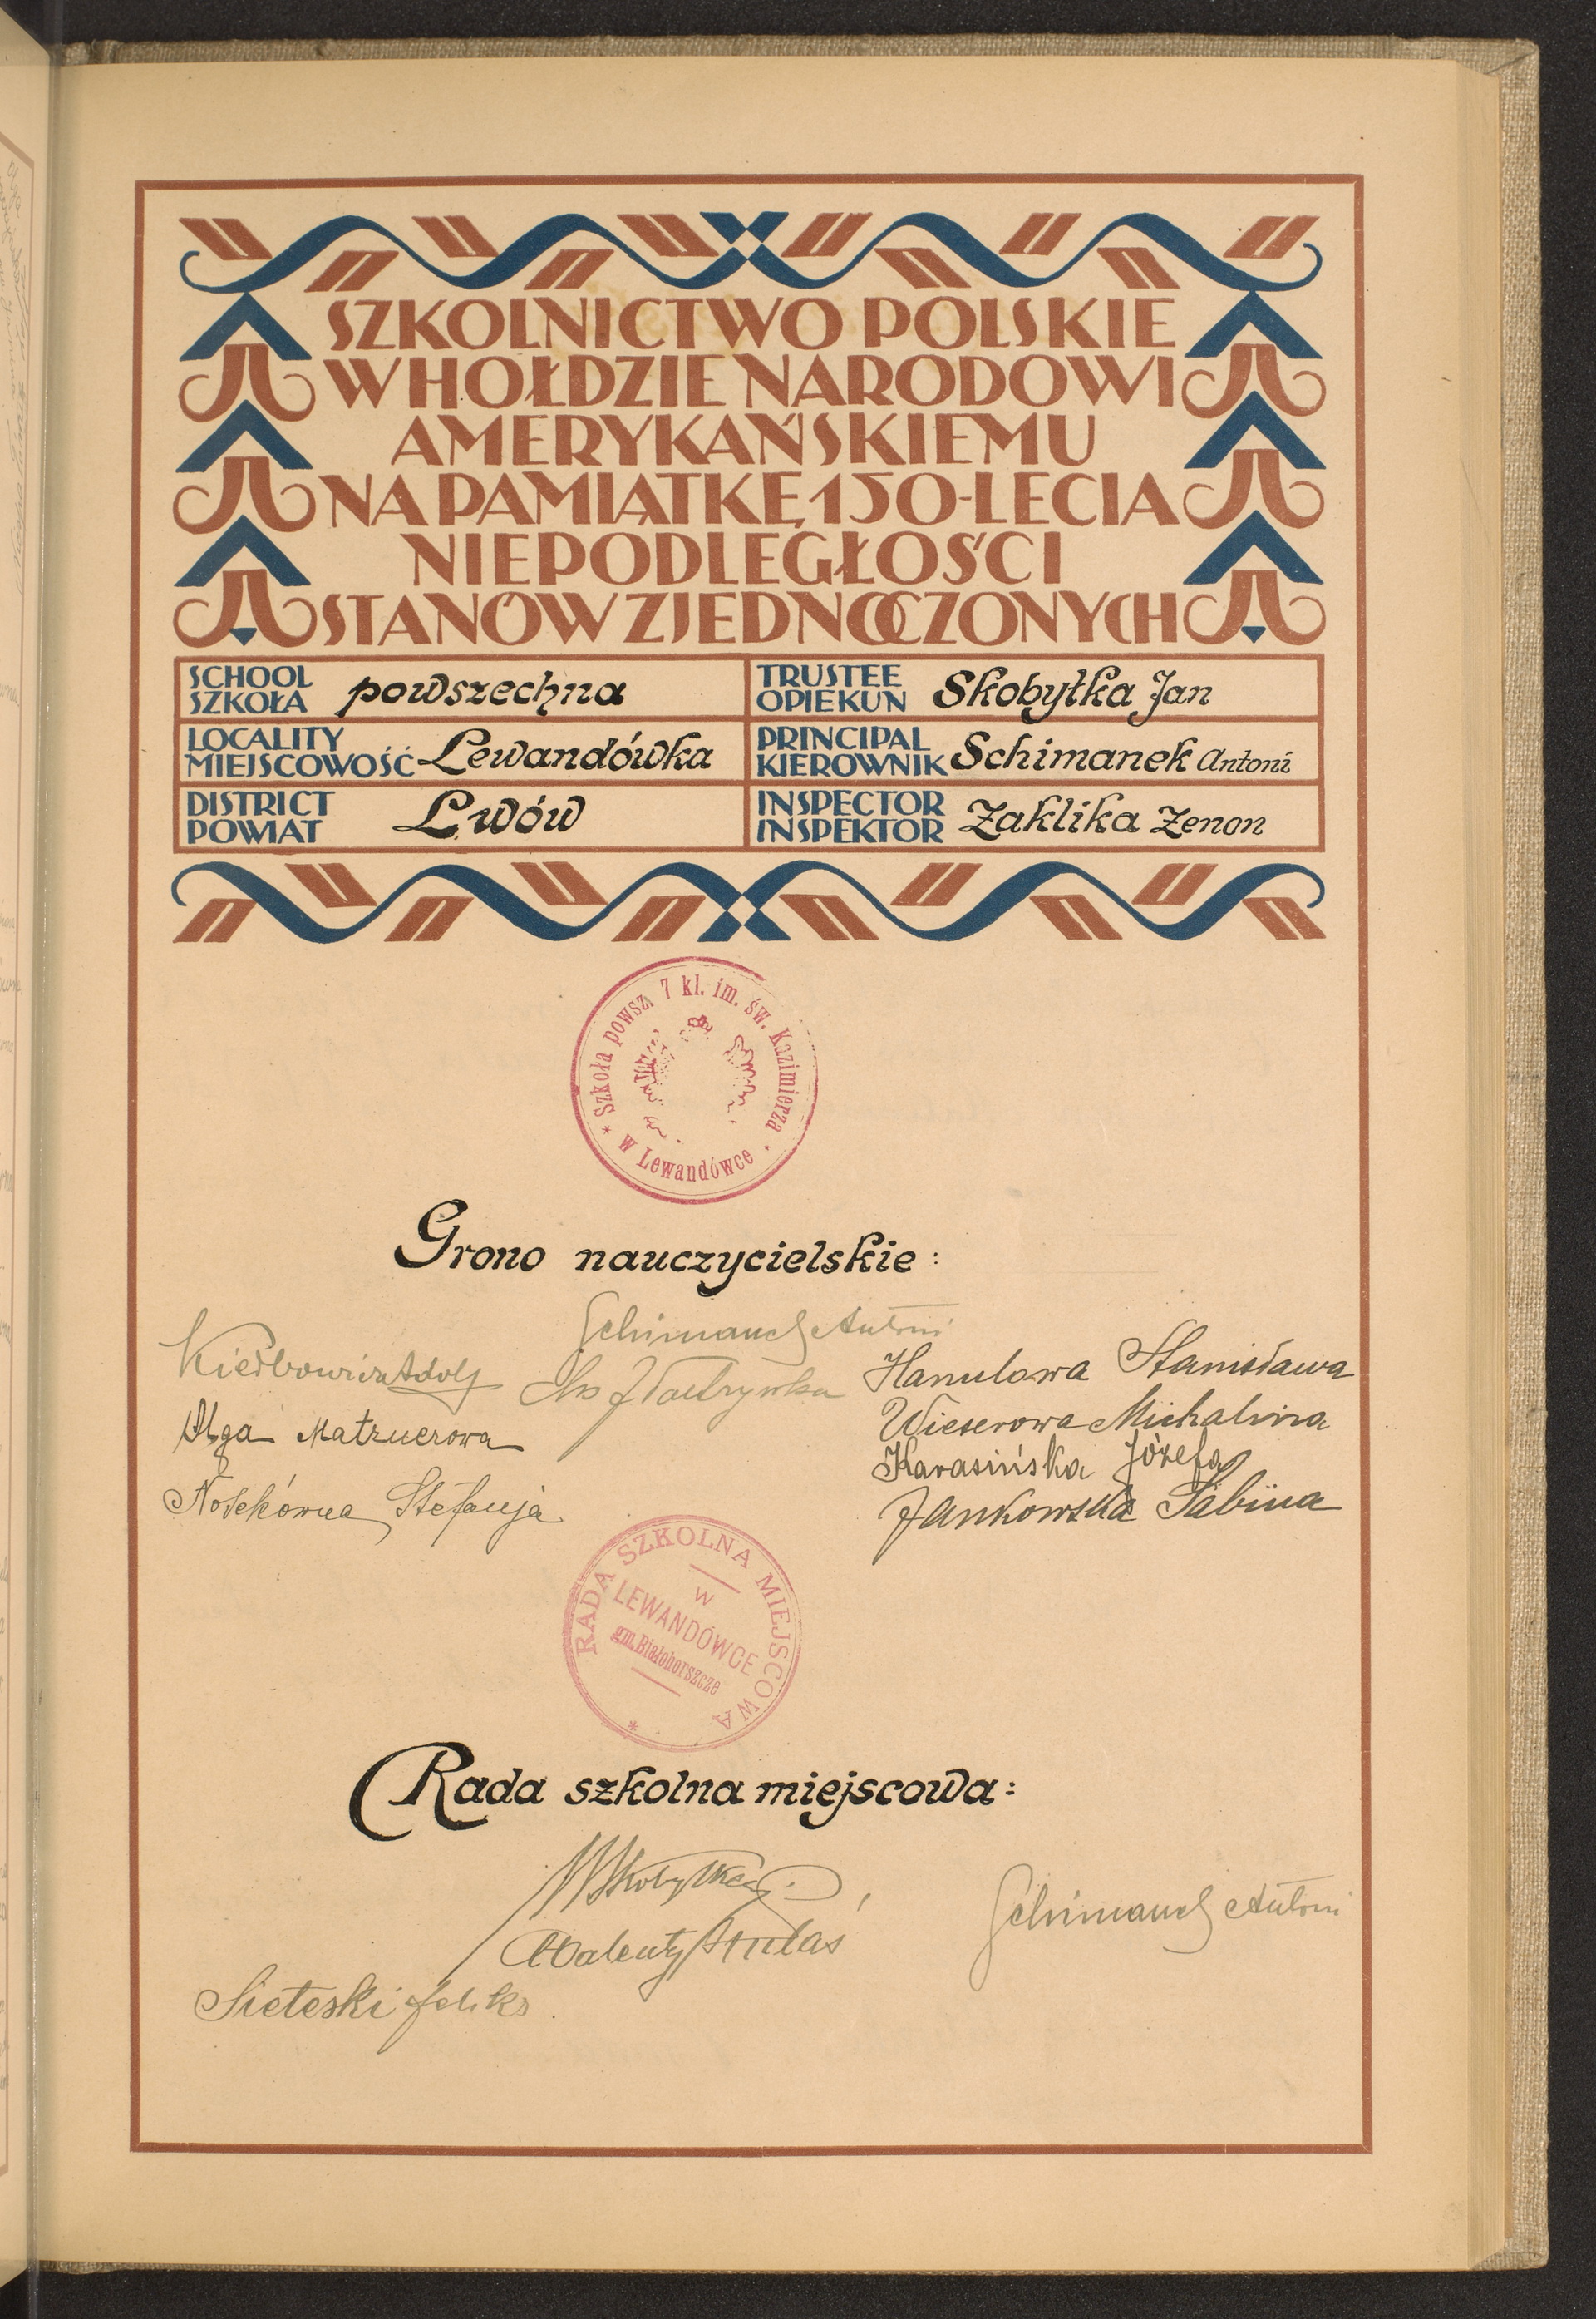 SZKOLNICTWO POLSKIE
W HOŁDZIE NARODOWI
AMERYKAŃSKIEMU
NA PAMIĄTKĘ 150-LECIA
NIEPODLEGŁOŚCI
STANÓW ZJEDNOCZONYCH
SCHOOL
SZKOŁA powszechna
TRUSTEE
OPIEKUN Skobyłka Jan
LOCALITY
MIEJSCOWOŚĆ Lewandówka
PRINCIPAL
KIEROWNIK Schimanek Antoni
DISTRICT
POWIAT Lwów
INSPECTOR
INSPEKTOR Zaklika Zenon
* Szkoła powsz. 7 kl. im. św. Kazimierza
w Lewandówce
Grono nauczycielskie:
Schimanek Antoni
Kiełbowicz Adolf
Hanulowa Stanisława
Olga Matznerowa
Wieserowa Michalina
Karasińska Józefa
Noskówna Stefanja
Jankowska Sabina
RADA SZKOLNA MIEJSCOWA *
W
LEWANDÓWCE
gm. Białohorszcze
Rada szkolna miejscowa:
Skobyłka
Schimanek Antoni
Walenty
Sieteski Feliks